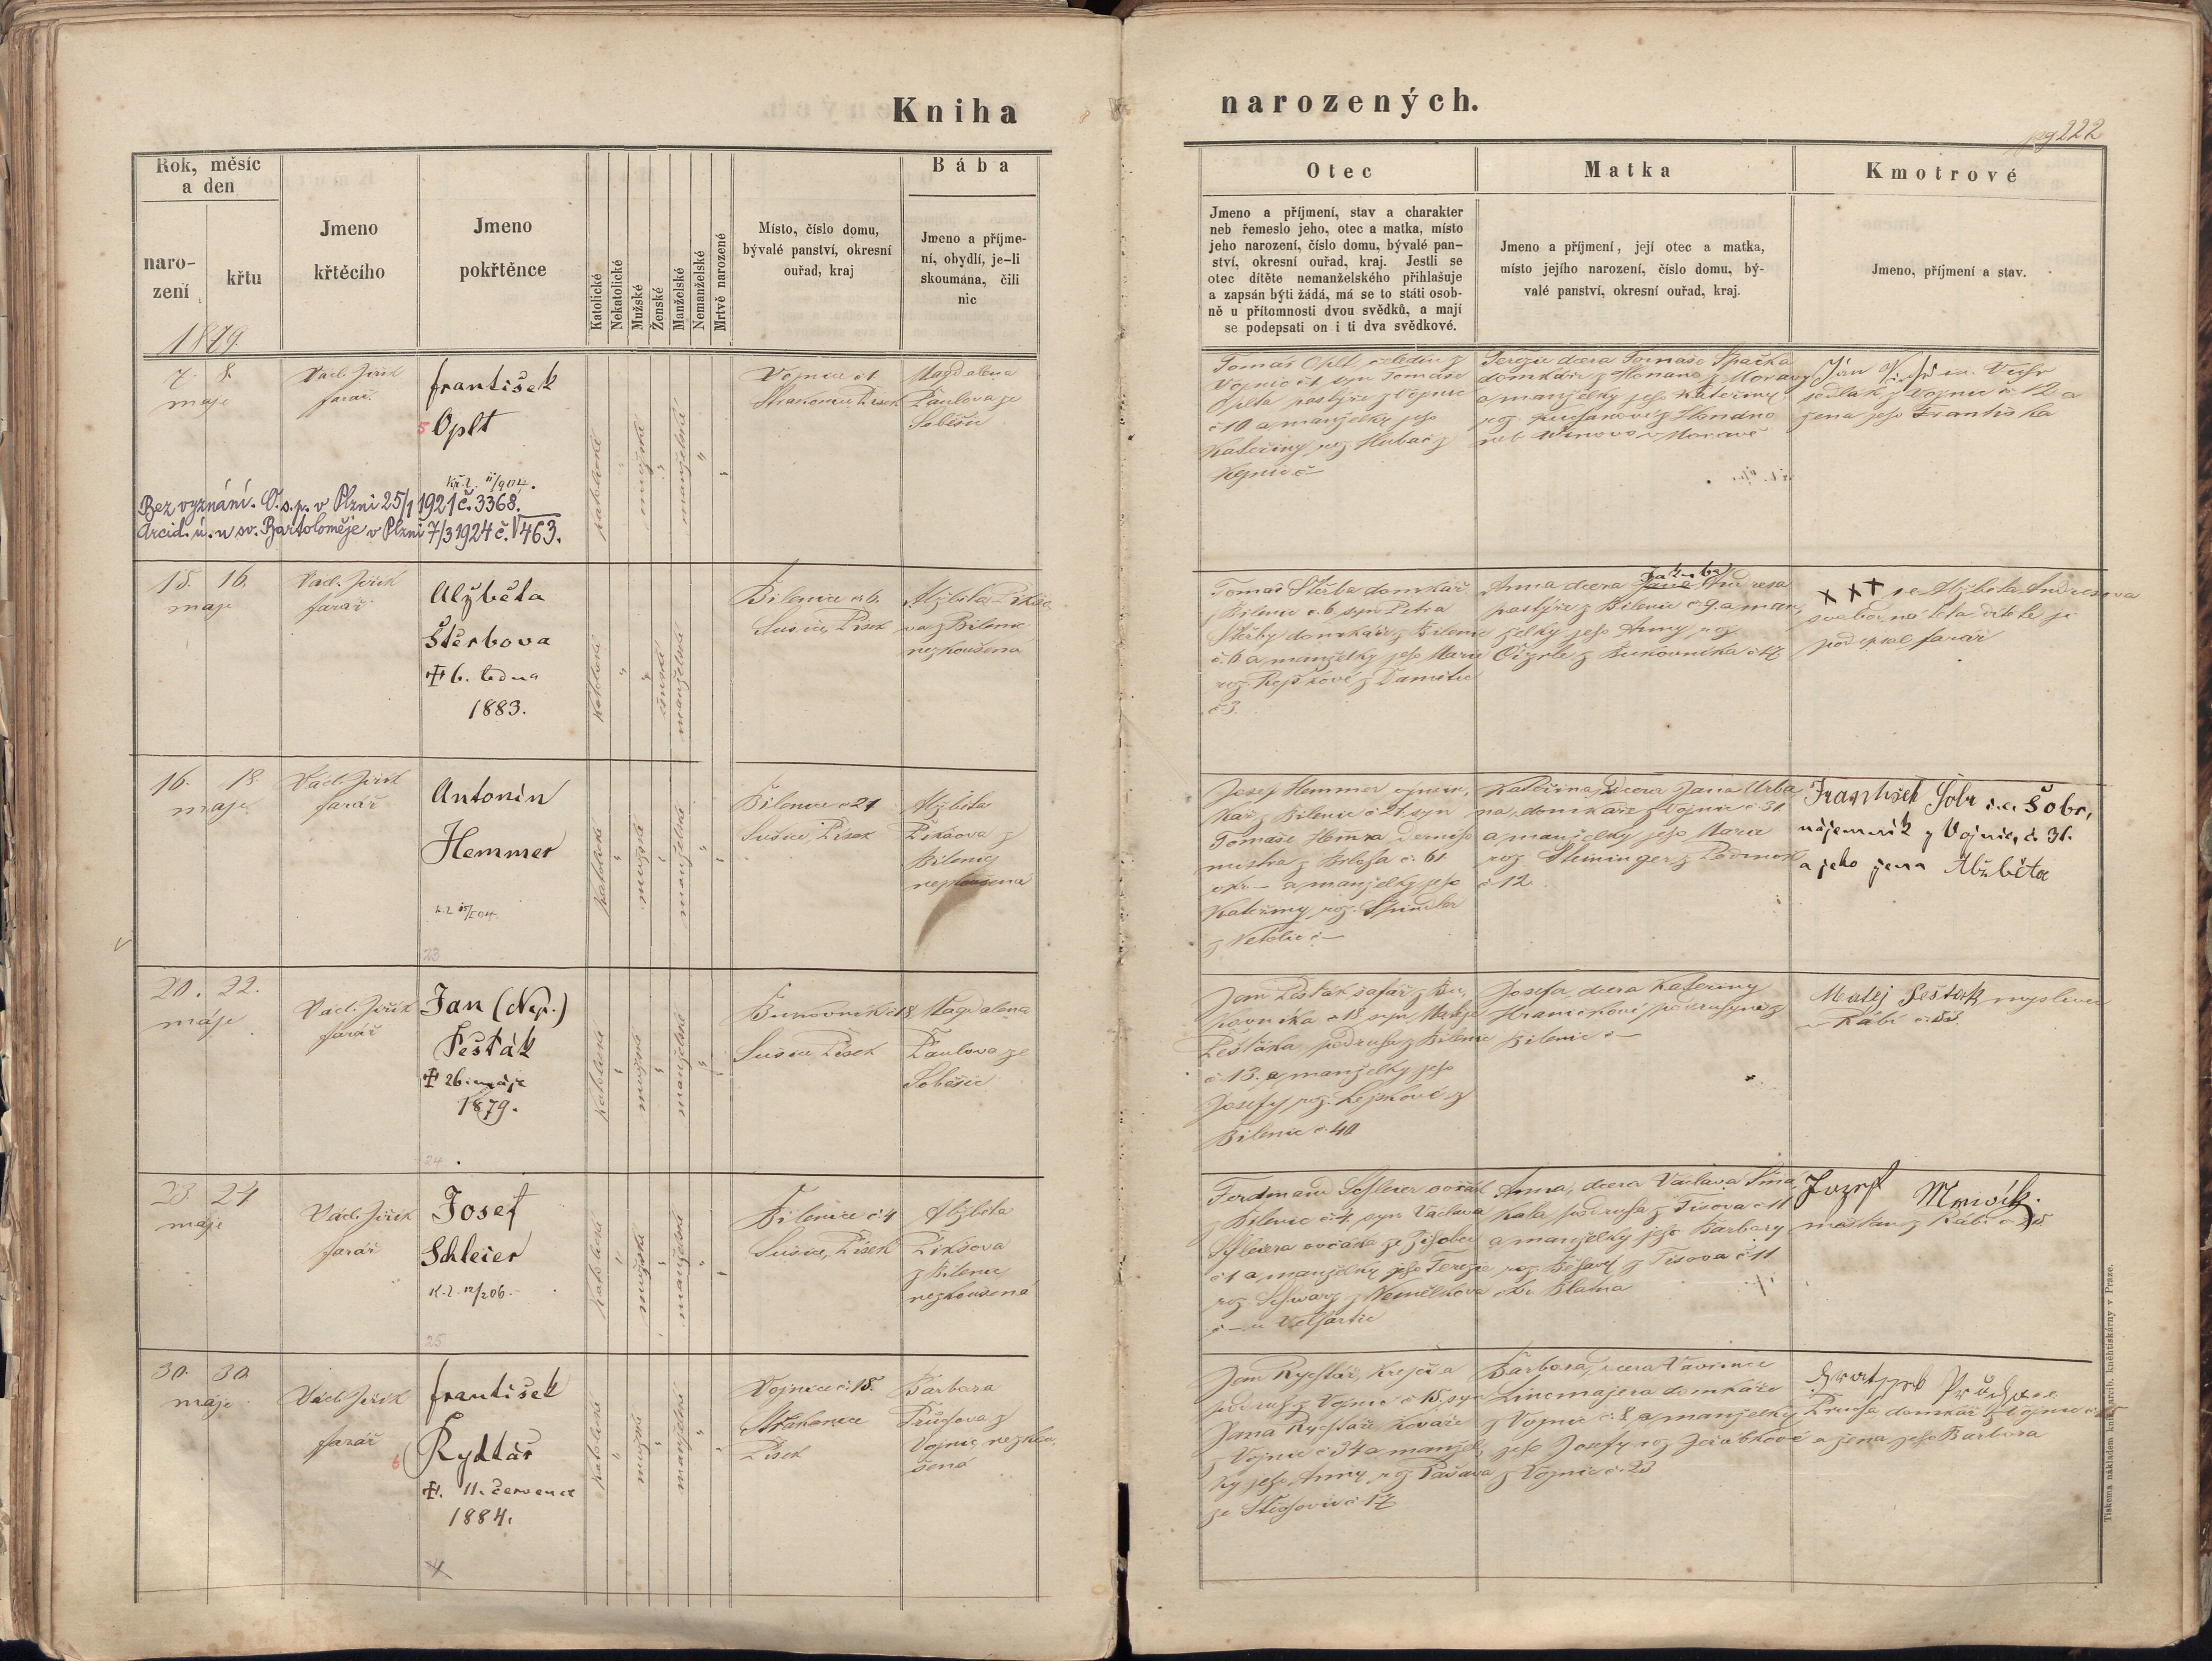 Kniha
narozených.
pg 222
Rok, měsíc
a den
naro-
zení
křtu
1879.
Jmeno
křtěcího
Jmeno
pokřtěnce
Katolické
Nekatolické
Mužské
Ženské
Manželské
Nemanželské
Mrtvě narozené
Místo, číslo domu,
bývalé panství, okresní
ouřad, kraj
Bába
Jmeno a příjme-
ní, obydlí, je-li
skoumána, čili
nic
Otec
Jmeno a příjmení, stav a charakter
neb řemeslo jeho, otec a matka, místo
jeho narození, číslo domu, bývalé pan-
ství, okresní ouřad, kraj. Jestli se
otec dítěte nemanželského přihlašuje
a zapsán býti žádá, má se to státi osob-
ně u přítomnosti dvou svědků, a mají
se podepsati on i ti dva svědkové.
Matka
Jmeno a příjmení, její otec a matka,
místo jejího narození, číslo domu, bý-
valé panství, okresní ouřad, kraj.
Kmotrové
Jmeno, příjmení a stav.
7. 8.
máje
Václ. Jiřík
farář
František
5 Oplt
Bez vyznání. O.s.p. v Plzni 25/1 1921 č. 3368.
Arcid. ú. u sv. Bartoloměje v Plzni 7/3 1924 č. 1463.
katolické
mužské
manželské
Vojnice č 1
Strakonice Písek
Magdalena
Paulova ze
Soběšic
Tomáš Oplt čeledín z
Vojnic č 1 syn Tomáše
Oplta pastýře z Vojnic
č 10 a manželky jeho
Kateřiny roz. Hubač z
Terezie dcera Tomáše Spačka
a manželky jeho Kateřiny
sedlák z Vojnic č. 12 a
žena jeho Františka
15. 16.
máje
Václ. Jiřík
farář
Alžběta
Štěrbova
✝ 6. ledna
1883.
katolické
ženské
manželské
Bilenice č 6.
Sušice, Písek
Alžběta Pikšo
va z Bilenic
nezkoušená
Tomáš Štěrba domkář
z Bilenic č. 6 syn Petra
Štěrby domkáře z Bilenic
č. 6 a manželky jeho Marie
roz. Rejškové z Damětic
č 3.
Jakuba
Anna dcera Jana Andresa
pastýře z Bilenic č. 9. a man,
želky jeho Anny roz.
z Bukovníka č 17
x x x Alžběta Andresova
svobodná teta dítěte je
podepsal farář
16. 18.
máje
Václ. Jiřík
farář
Antonín
Hemmer
23
katolické
mužské
manželské
Bilenice č 21
Sušice, Písek
Alžběta
Pikšova z
Bilenic
nezkoušená
Josef Hemmer
kář z Bilenic č 21. syn
Tomáše
mistra z č. 61
okr – a manželky jeho
Kateřiny roz. Spindler
z Netolic č –
Kateřina, dcera Jana Urba
na, domkáře z Vojnic č 31
a manželky jeho Marie
roz. Steininger z Podmok
č 12.
František Šobr Šobr,
nájemník z Vojnic, č. 31.
a jeho žena Alžběta
20. 22.
máje
Václ. Jiřík
farář
Jan (Nep.)
Pešták
✝ 26. máje
1879.
24
katolické
mužské
manželské
Bukovník č 18
Sušice Písek
Magdalena
Paulova ze
Soběšic
Jan Pešták šafář z Bu,
kovníka č 18 syn Matěje
Peštáka, podruha z Bilenic
č. 13. a manželky jeho
Josefy roz. Lejskové z
Bilenic č. 40
Josefa, dcera Kateřiny
Hraničkové, podruhyně z
Bilenic č –
Matěj Pešták myslivec
v Rábí
23 24
máje
Václ. Jiřík
farář
Josef
Schleier
k.l. 12/206.
25
katolické
mužské
manželské
Bilenice č 4
Sušice, Písek
Alžběta
Pikšova
z Bilenic
nezkoušená
Ferdinand Schleier ovčák
z Bilenic č. 4, syn Václava
Schleiera ovčáka ze Zihobec
č 1 a manželky jeho Terezie
roz. Schwarz z Nemělkova
č – u Velhartic
Anna, dcera Václava Smí
kala, podruha z Tisova č 11
a manželky jeho Barbory
z Tisova č 11
okr. Blatná
Jozef Mrvík.
měštan z Rábí
30. 30.
máje
Václ. Jiřík
farář
František
6 Rychtář
✝. 11. července
1884.
katolické
mužské
manželské
Vojnice č. 15.
Strakonice
Písek
Barbora
Průchova z
Vojnic, nezkou,
šená
Jan Rychtář, krejčí a
podruh z Vojnic č 15, syn
Jana Rychtáře kováře
z Vojnic č 34 a manžel,
ky jeho Anny roz. Pašava
ze Střehovic č 17
Barbora, dcera Vavřince
Lincmajera domkáře
z Vojnic č. 8 a manželky
jeho Josefy roz. Jeřábkové
z Vojnic č. 23
Průcha domkář z Vojnic č. 15
a žena jeho Barbora
Tiskem a nákladem knížecí arcib. knehtiskárny v Praze.